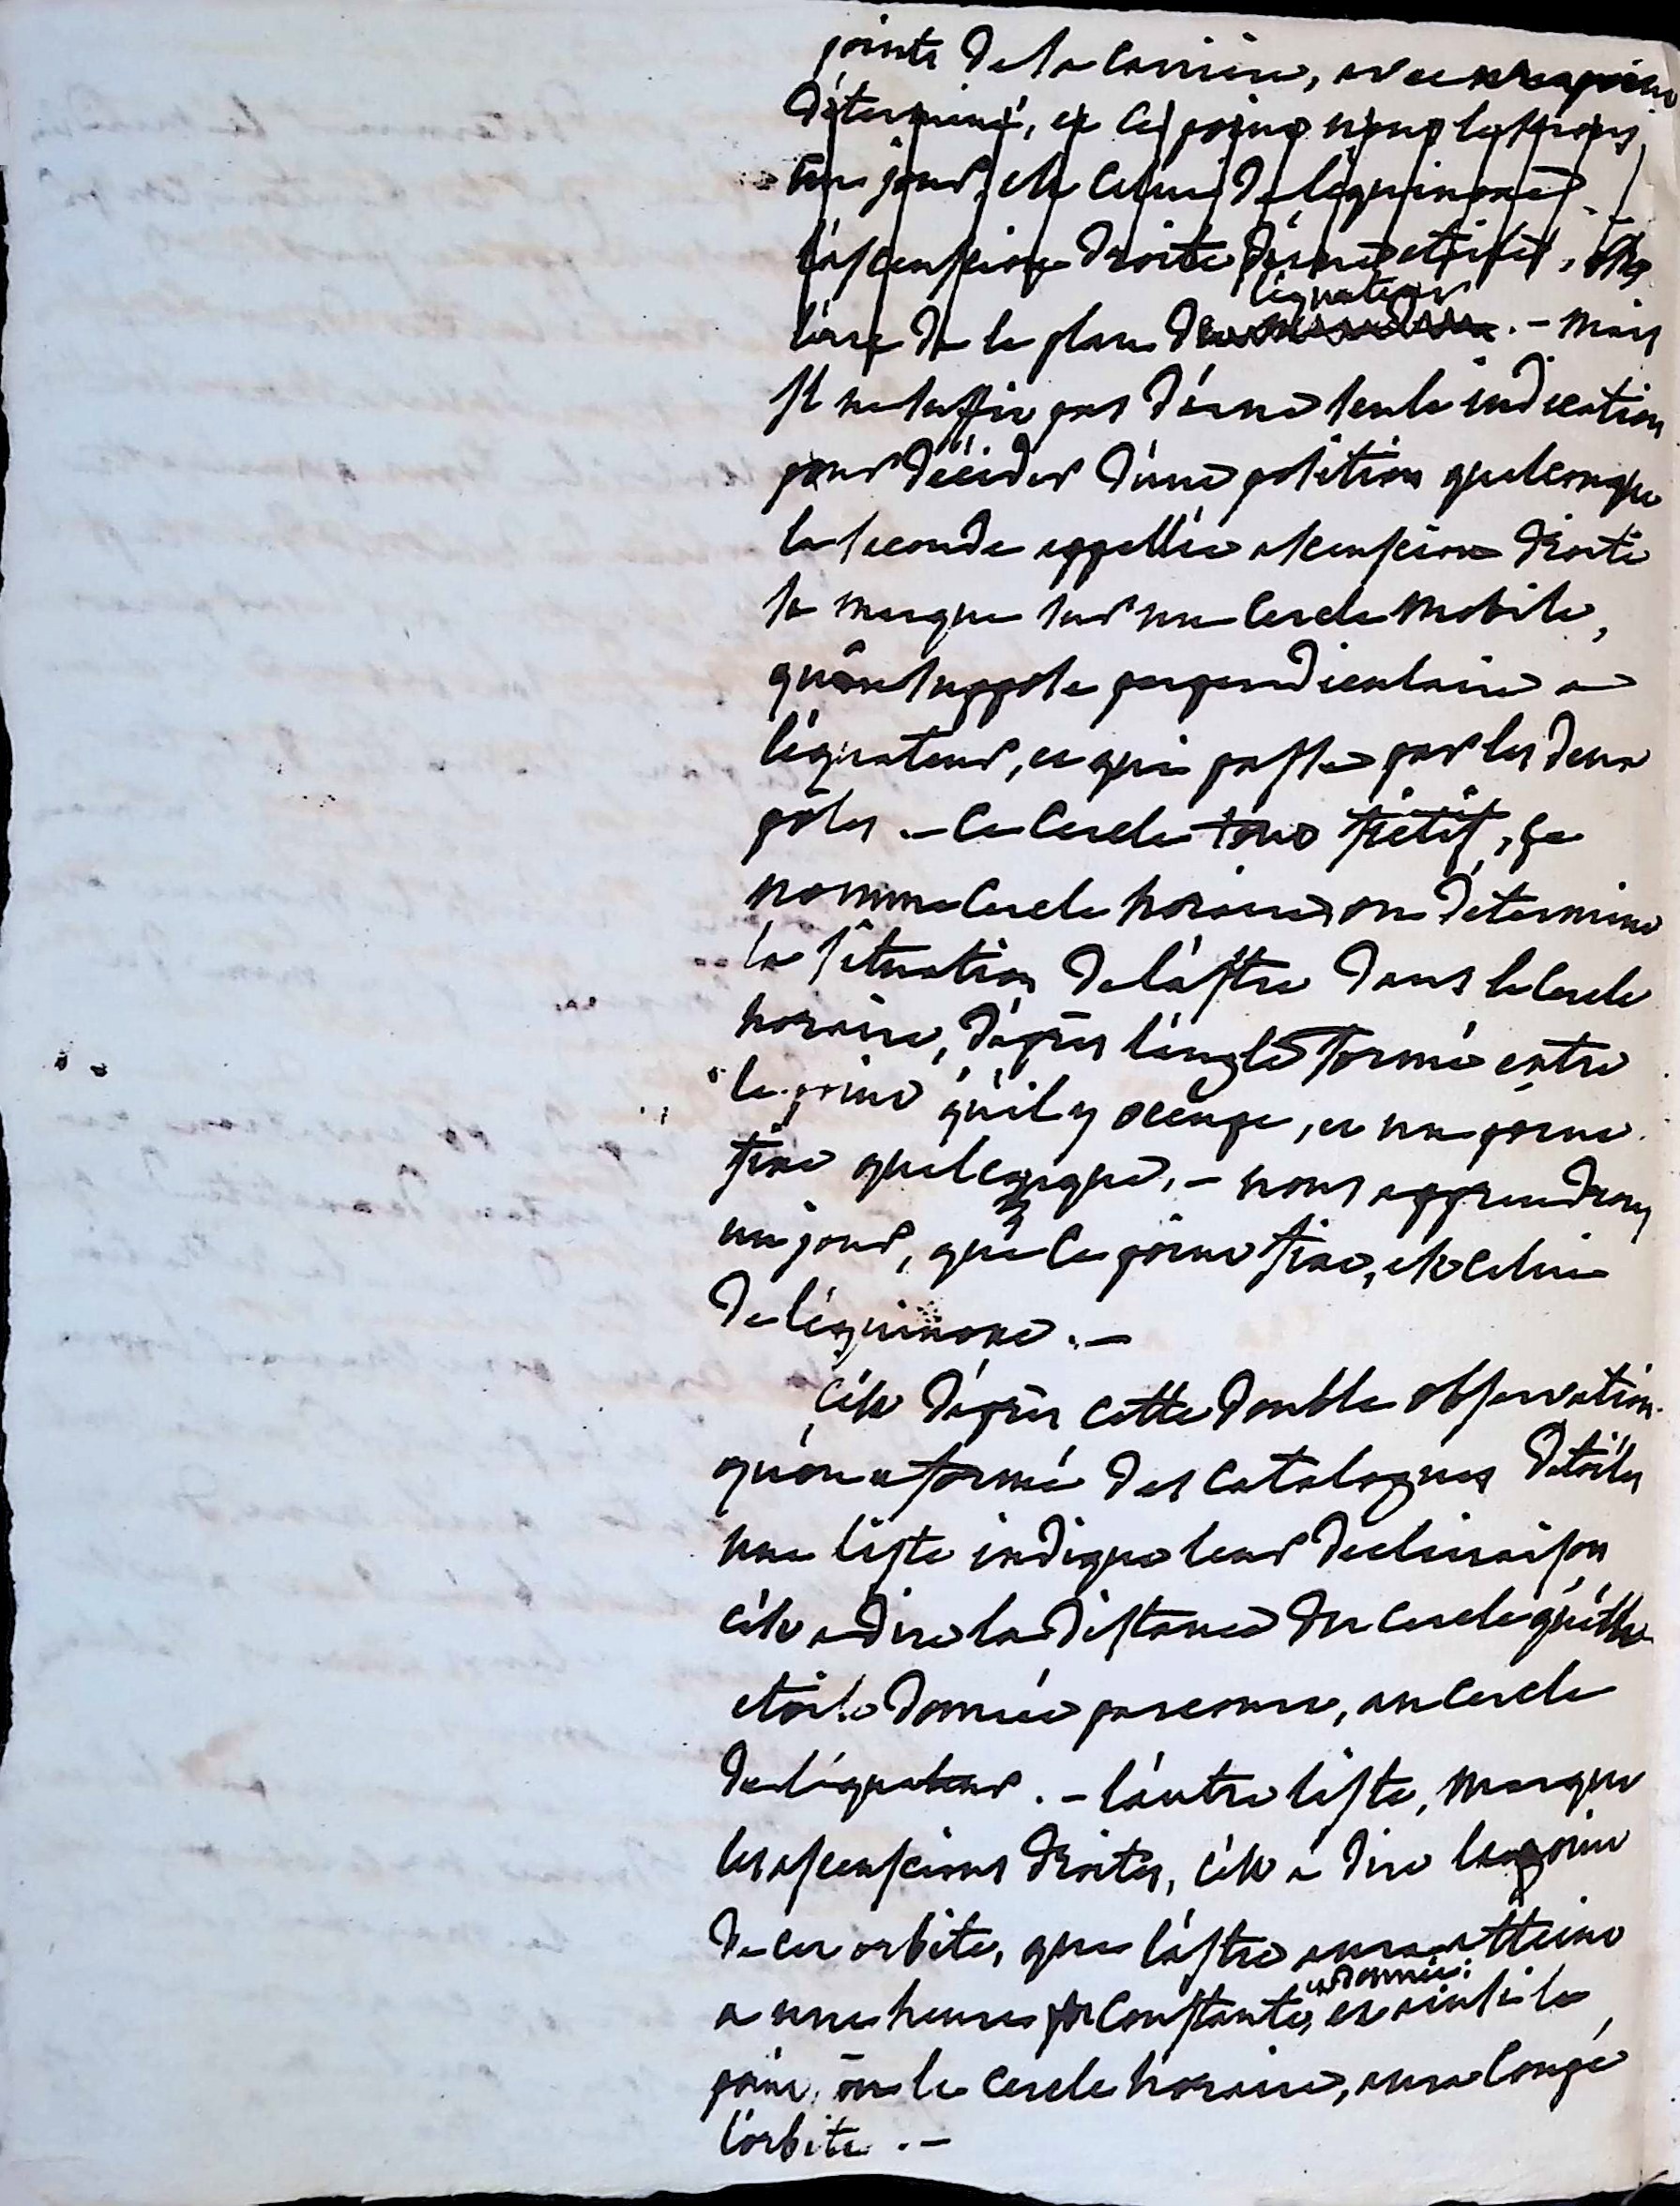 points de la carrière, avec un point
déterminé, et ce point nous le saurons,
un jour, est celui de l'équinoxe.
l'ascension droite d'une etoile,
l'axe de le plan de l'équateur . - mais
il ne suffit pas d'une seule indication
pour décider d'une position quelconque
la seconde appellée ascension droite
se marque sur un cercle mobile,
qu'on suppose perpendiculaire a
l'équateur, et qui passe par les deux
pôles . - ce cercle tout fictif, se
nomme cercle horaire, on détermine
la situation de l'astre dans le cercle
horaire, d'après l'angle formé entre
le point qu'il y occupe, et un point
fixe quelconque, - nous apprendrons
un jour, que ce point fixe, est celui
de l'équinoxe . -
c'est d'après cette double observation
qu'on a formé des catalogues d'étoiles
une liste indique leur declinaison
c'est a dire la distance du cercle qu'elle
etoile donnée parcourt, au cercle
de l'équateur . - l'autre liste, marque
les ascensions droites, c'est a dire le point
de cet orbite, que l'astre aura atteint
a une heure constante, et donnée; et ainsi le
point, ou le cercle horaire, aura coupé
l'orbite . -